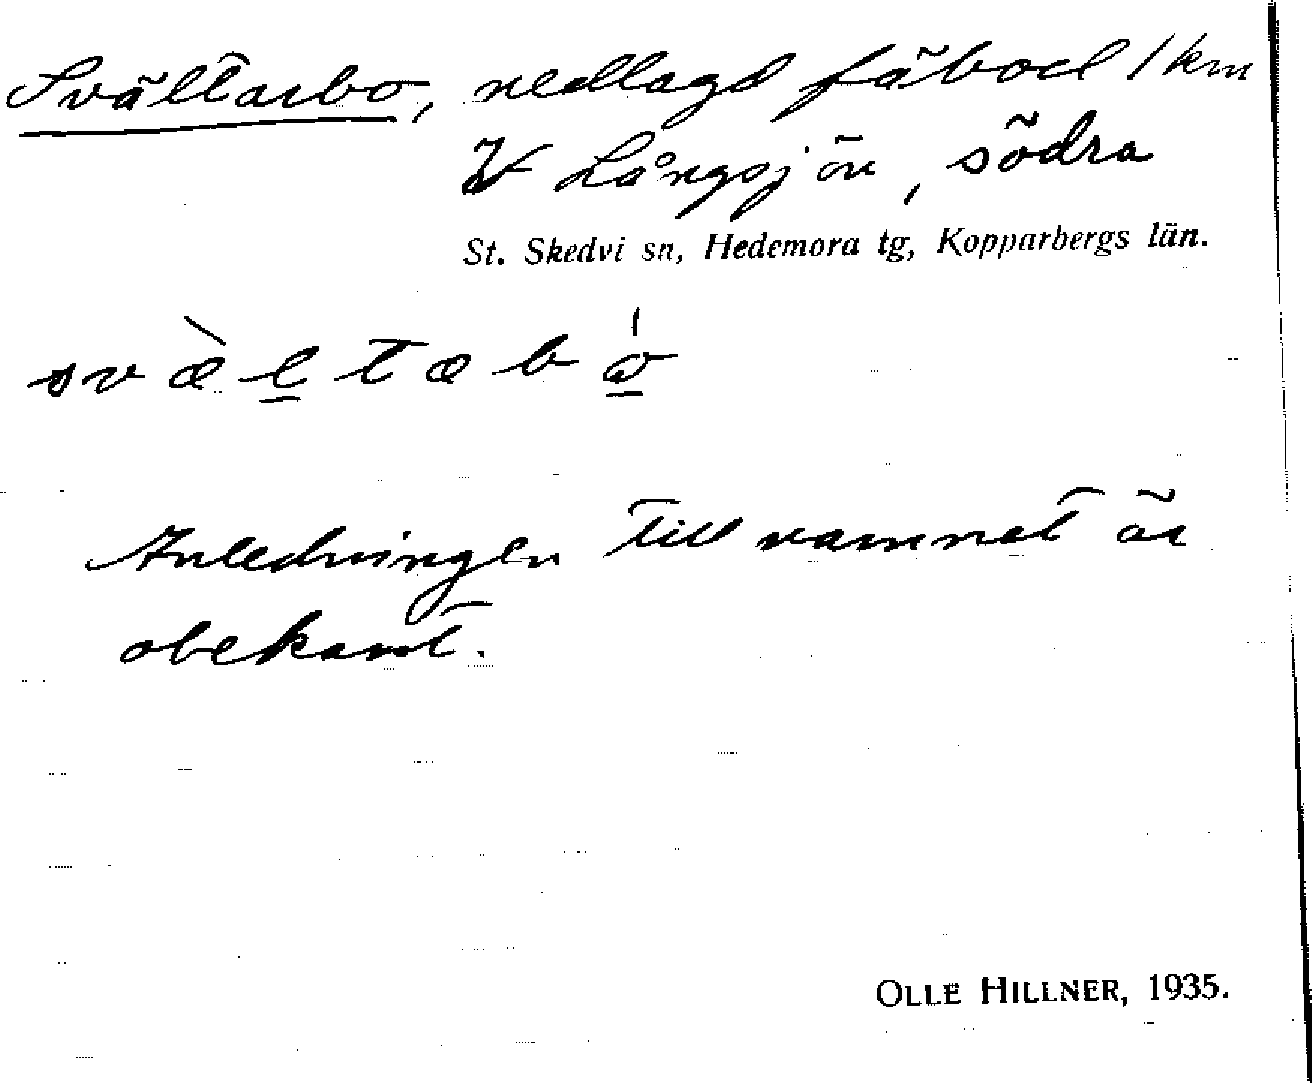 Svältarbo, nedlagd fäbod 1 km
V Långsjön, södra
St. Skedvi sn, Hedemora tg, Kopparbergs län.
svæ̀l̠tæbώ̠
Anledningen till namnet är
obekant.
OLLE HILLNER, 1935.